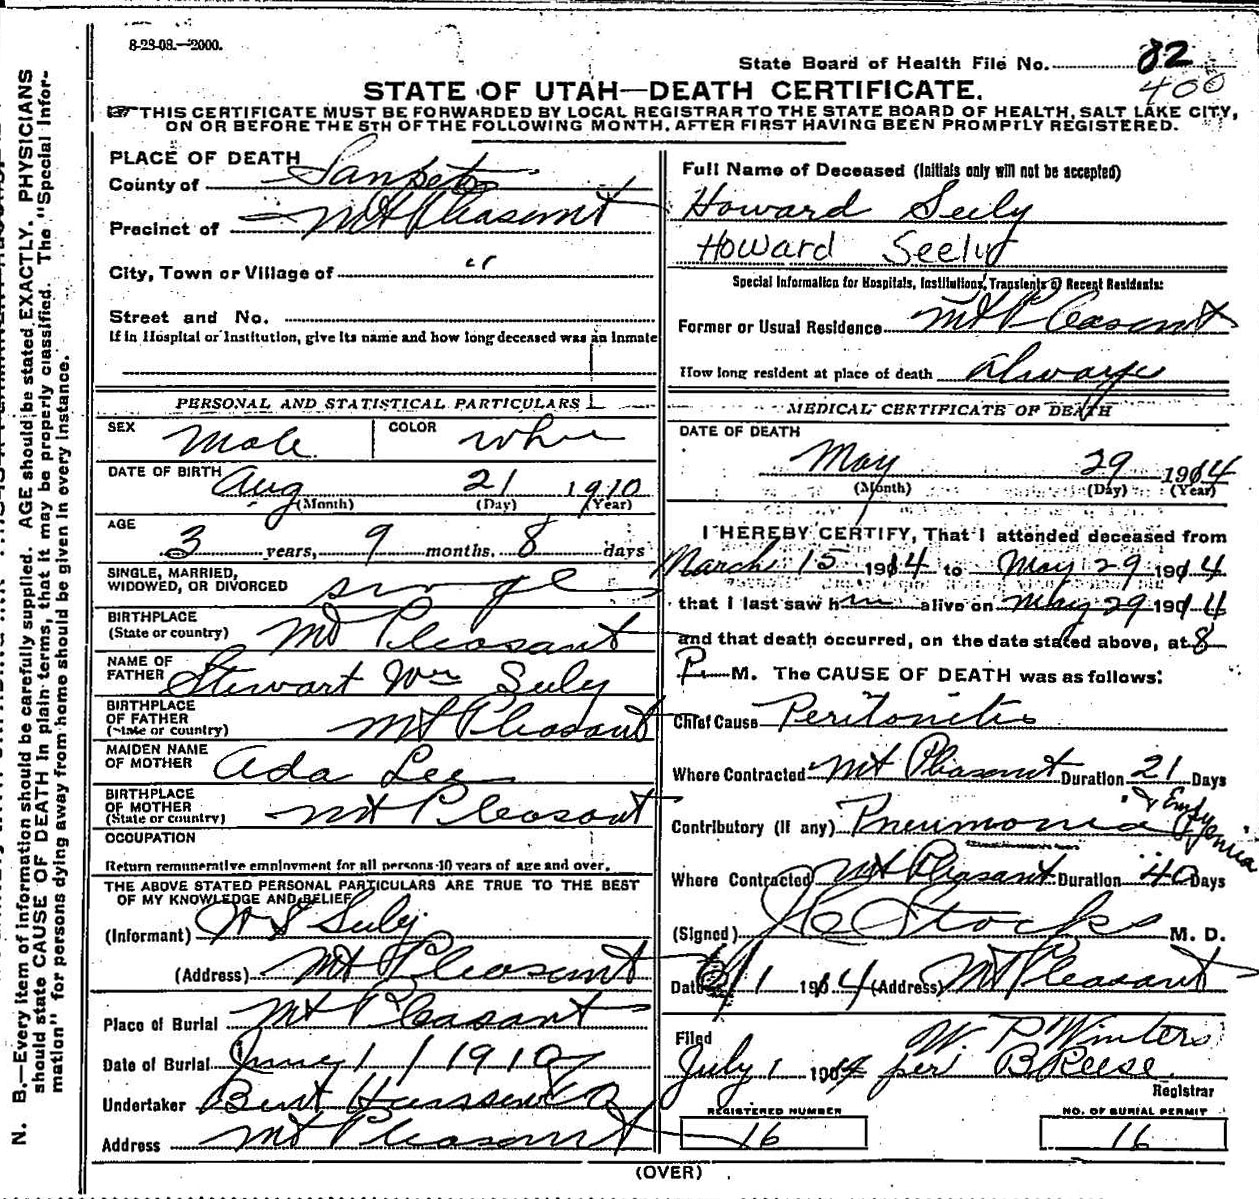 8-23-08.—2000.
State Board of Health File No. 82
400
STATE OF UTAH—DEATH CERTIFICATE.
THIS CERTIFICATE MUST BE FORWARDED BY LOCAL REGISTRAR TO THE STATE BOARD OF HEALTH, SALT LAKE CITY,
ON OR BEFORE THE 5TH OF THE FOLLOWING MONTH, AFTER FIRST HAVING BEEN PROMPTLY REGISTERED.
PLACE OF DEATH
County of Sanpete
Precinct of Mt Pleasant
City, Town or Village of "
Street and No.
If in Hospital or Institution, give its name and how long deceased was an inmate
PERSONAL AND STATISTICAL PARTICULARS
SEX Male COLOR White
DATE OF BIRTH Aug 21 1910
(Month) (Day) (Year)
AGE 3 years, 9 months, 8 days
SINGLE, MARRIED,
WIDOWED, OR DIVORCED single
BIRTHPLACE
(State or country) Mt Pleasant
NAME OF
FATHER Stewart Wm Seely
BIRTHPLACE
OF FATHER
(State or country) Mt Pleasant
MAIDEN NAME
OF MOTHER Ada Lee
BIRTHPLACE
OF MOTHER
(State or country) Mt Pleasant
OCCUPATION
Return remunerative employment for all persons 10 years of age and over.
THE ABOVE STATED PERSONAL PARTICULARS ARE TRUE TO THE BEST
OF MY KNOWLEDGE AND BELIEF
(Informant) W S Seely
(Address) Mt Pleasant
Place of Burial Mt Pleasant
Date of Burial June 1 1910
Undertaker
Address Mt Pleasant
Full Name of Deceased (Initials only will not be accepted)
Howard Seely
Howard Seely
Special Information for Hospitals, Institutions, Transients or Recent Residents:
Former or Usual Residence Mt Pleasant
How long resident at place of death Always
MEDICAL CERTIFICATE OF DEATH
DATE OF DEATH
May 29 1914
(Month) (Day) (Year)
I HEREBY CERTIFY, That I attended deceased from
March 15 1914 to May 29 1914
that I last saw him alive on May 29 1914
and that death occurred, on the date stated above, at 8
P. M. The CAUSE OF DEATH was as follows:
Chief Cause Peritonitis
Where Contracted Mt Pleasant Duration 21 Days
Contributory (if any) Pneumonia & Empyemia
Where Contracted Mt Pleasant Duration 40 Days
(Signed) Stocks M. D.
Date 1 1914 (Address) Mt Pleasant
Filed W. P. Winters
July 1 1904 per B Reese
Registrar
REGISTERED NUMBER
16
NO. OF BURIAL PERMIT
16
(OVER)
N. B.—Every item of information should be carefully supplied. AGE should be stated EXACTLY. PHYSICIANS
should state CAUSE OF DEATH in plain terms, that it may be properly classified. The "Special Infor-
mation" for persons dying away from home should be given in every instance.